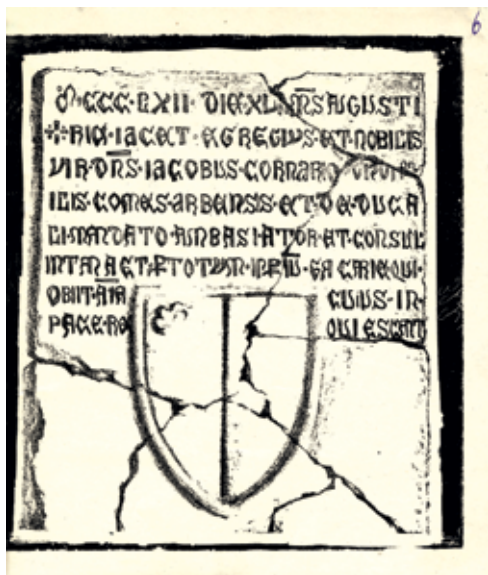 6
M·CCC·LXII· DIE XL MS AUGUSTI
✢HIC·IACET·EGREGIVS·ET·NOBILIS
VIR·DNS·IACOBUS·CORNARIO
ILIS·COMES·ARBENSIS·ET·DE·DUCA
LI·MANDATO·AMBASIATOR·ET·CONSUL
IN TANA ET·P TOTUM· QUI·
OBIIT·AIA CUIUS·IN·
PACE·RE QUIESCAT